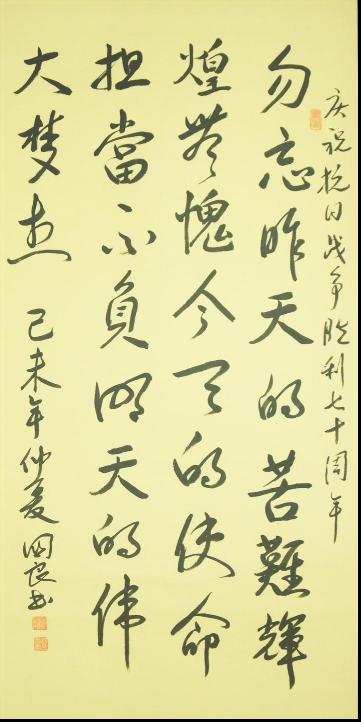 庆祝抗日战争胜利七十周年
勿忘昨天的苦難輝
煌無愧今天的使命
担當不負明天的偉
大梦想
己未年仲夏国良书